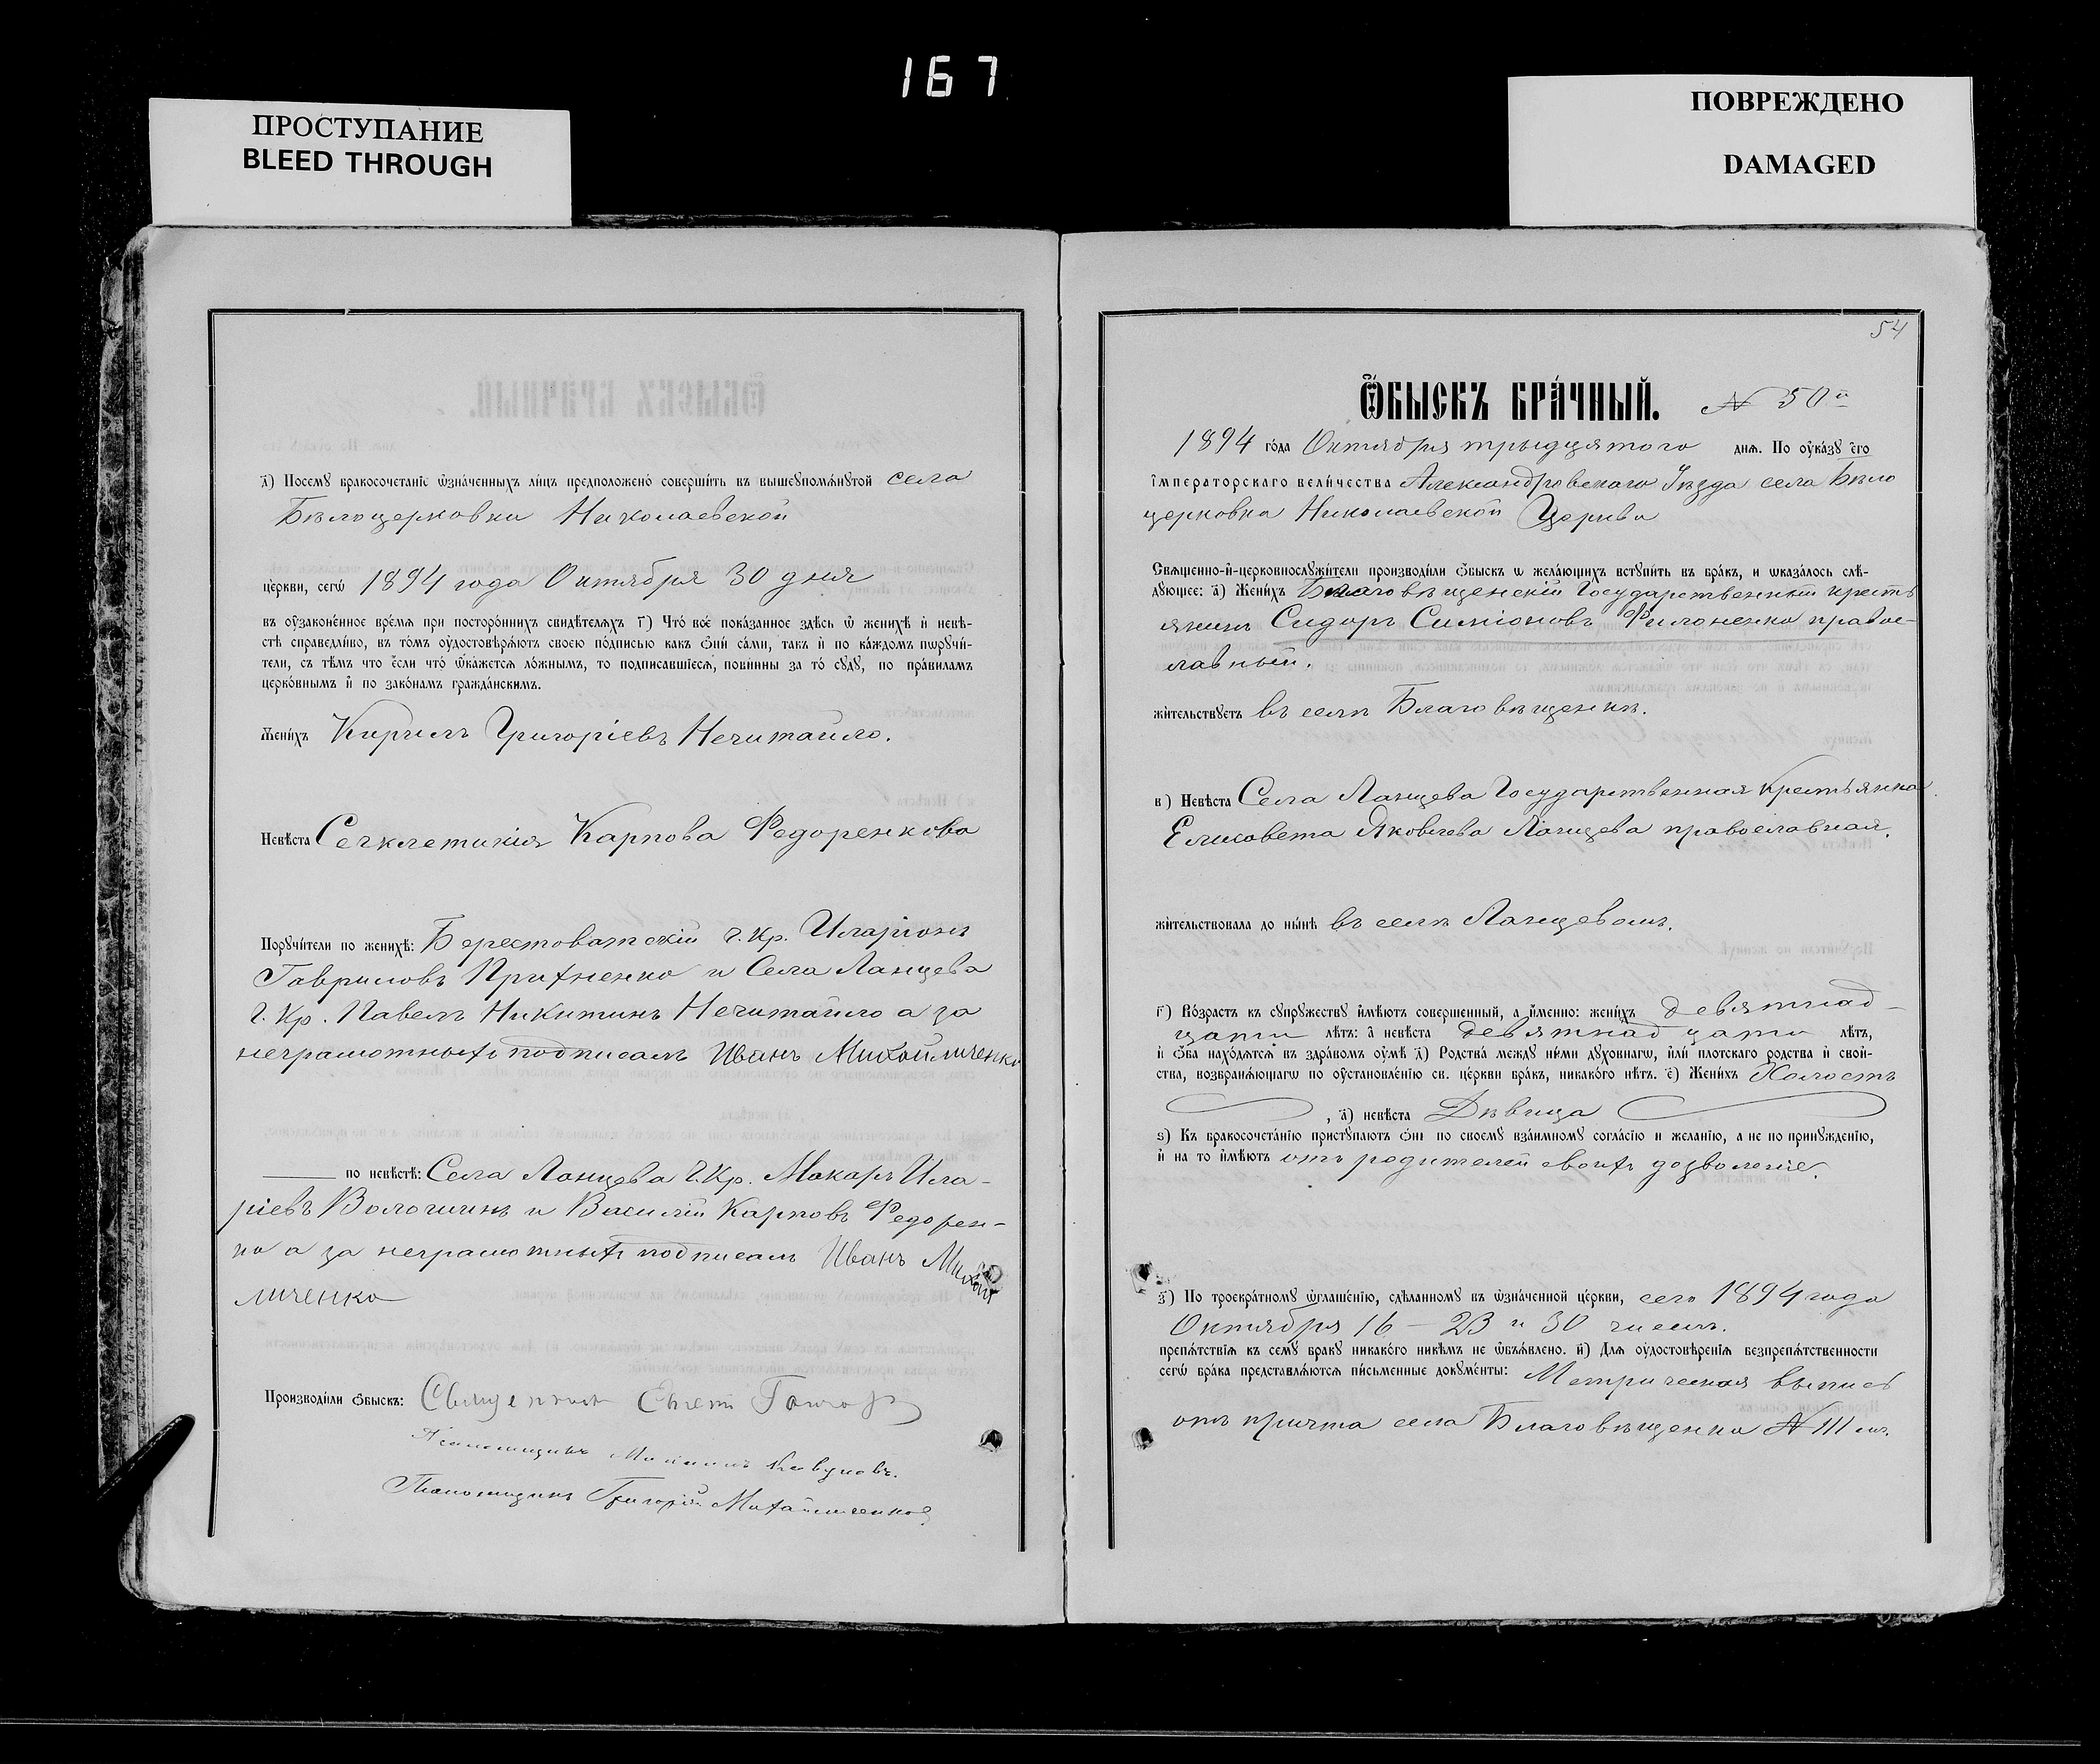 167
ПРОСТУПАНИЕ
BLEED THROUGH
ПОВРЕЖДЕНО
DAMAGED
д҃) Посемꙋ бракосочетаніе ѡзна́ченныхъ ли́цъ предположено́ соверши́ть въ вышеꙋпомѧ́нꙋтой села
Бѣлоцерковки Николаевской
це́ркви, сегѡ̀ 1894 года Октября 30 дня
въ оу҆зако́ненное вре́мѧ при посторо́ннихъ свидѣ́телѧхъ г҃) Что́ все́ пока́занное здѣ́сь ѡ҆ женихѣ̀ и҆ невѣ́-
стѣ справедли́во, въ то́мъ оу҆достовѣрѧ́ютъ своею по́дписью какъ ѻ҆ни́ са́ми, та́къ и҆ по ка́ждомъ пѡрꙋчи́-
тели, съ тѣ́мъ что е҆́сли что́ ѡ҆ка́жетсѧ ло́жнымъ, то подписавшіесѧ̀ пови́нны за то́ сꙋдꙋ̀, по пра́виламъ
церко́внымъ и҆ по зако́намъ гражда́нскимъ.
Жени́хъ Кирилъ Григоріевъ Нечитайло.
Невѣ́ста Секлетикія Карпова Федоренкова
Порꙋчи́тели по женихѣ̀: Берестоватскій г. кр. Иларіонъ
Гавриловъ и Села Ланцева
г. Кр. Павелъ Никитинъ Нечитайло а за
неграмотныхъ подписалъ Иванъ Михайличенко
по невѣ́стѣ: Села Ланцева г. Кр. Макаръ Ила-
ріевъ Волошинъ и Василій Карповъ Федорен-
ко а за неграмотныхъ подписалъ Иванъ Михай
личенко
Производи́ли ѻ҆́быскъ: Священникъ
Псаломщикъ
Псаломщикъ Григорій Михайличенко
54
Ѻ҆́БЫСКЪ БРА́ЧНЫЙ. № 50й
1894 го́да Октября тридцятого днѧ. По оу҆ка́зꙋ є҆го̀
і҆мператорскаго вели́чества Александровскаго Уѣзда села Бѣло
церковка Николаевской Церкви
Свѧщенно-и҆-церковнослꙋжи́тели производи́ли ѻ҆́быскъ ѡ жела́ющихъ встꙋпи́ть въ бра́къ, и ѡказа́лось слѣ́-
дꙋющее: а҃) Жени́хъ Благовѣщенскій Государственный кресть
янинъ Сидоръ Симіоновъ Филоненко правос-
лавный.
жи́тельствꙋетъ въ селѣ Благовѣщенкѣ.
в҃) Невѣ́ста Села Ланцева Государственная Крестьянка
Елисовета Яковлева Ланцева православная.
жи́тельствовала до ны́нѣ въ селѣ Ланцевомъ.
г҃) Во́зрастъ къ сꙋпрꙋ́жествꙋ и҆мѣ́ютъ совершенный, а и҆́менно: жени́хъ девятнад-
цати лѣтъ: а҆ невѣста девятнадцати лѣтъ,
и҆ ѻ҆́ба нахо́дятсѧ въ здра́вомъ оу҆мѣ̀ д҃) Родства̀ междꙋ ни́ми дꙋхо́внагѡ, и҆лѝ плотскаго родства̀ и҆ свой-
ства̀, возбранѧ́ющагѡ по оу҆становле́нію св. це́ркви бра́къ, никако́го нѣ́тъ. є҃) Жени́хъ Холостъ
, а҃) невѣ́ста Дѣвица
ѕ҃) Къ бракосочета́нію пристꙋпа́ютъ ѻ҆нѝ по своемꙋ̀ вза́имномꙋ согла́сію и жела́нію, а не по принꙋжде́нію,
и҆ на то и҆мѣ́ютъ отъ родителей своихъ дозволеніе.
з҃) По троекра́тномꙋ ѡ҆глаше́нію, сдѣ́ланномꙋ въ ѡ҆зна́ченной це́ркви, сего 1894 года
Октября 16 – 23 и 30 чиселъ.
препѧ́тствіѧ къ семꙋ̀ бра́кꙋ никако́го никѣ́мъ не ѡ҆бъѧ́влено. и҃) Для оу҆достовѣ́реніѧ безпрепѧ́тственности
сегѡ̀ бра́ка представлѧ́ютсѧ пи́сьменные докꙋме́нты: Метрическая выпись
отъ причта села Благовѣщенки № 111